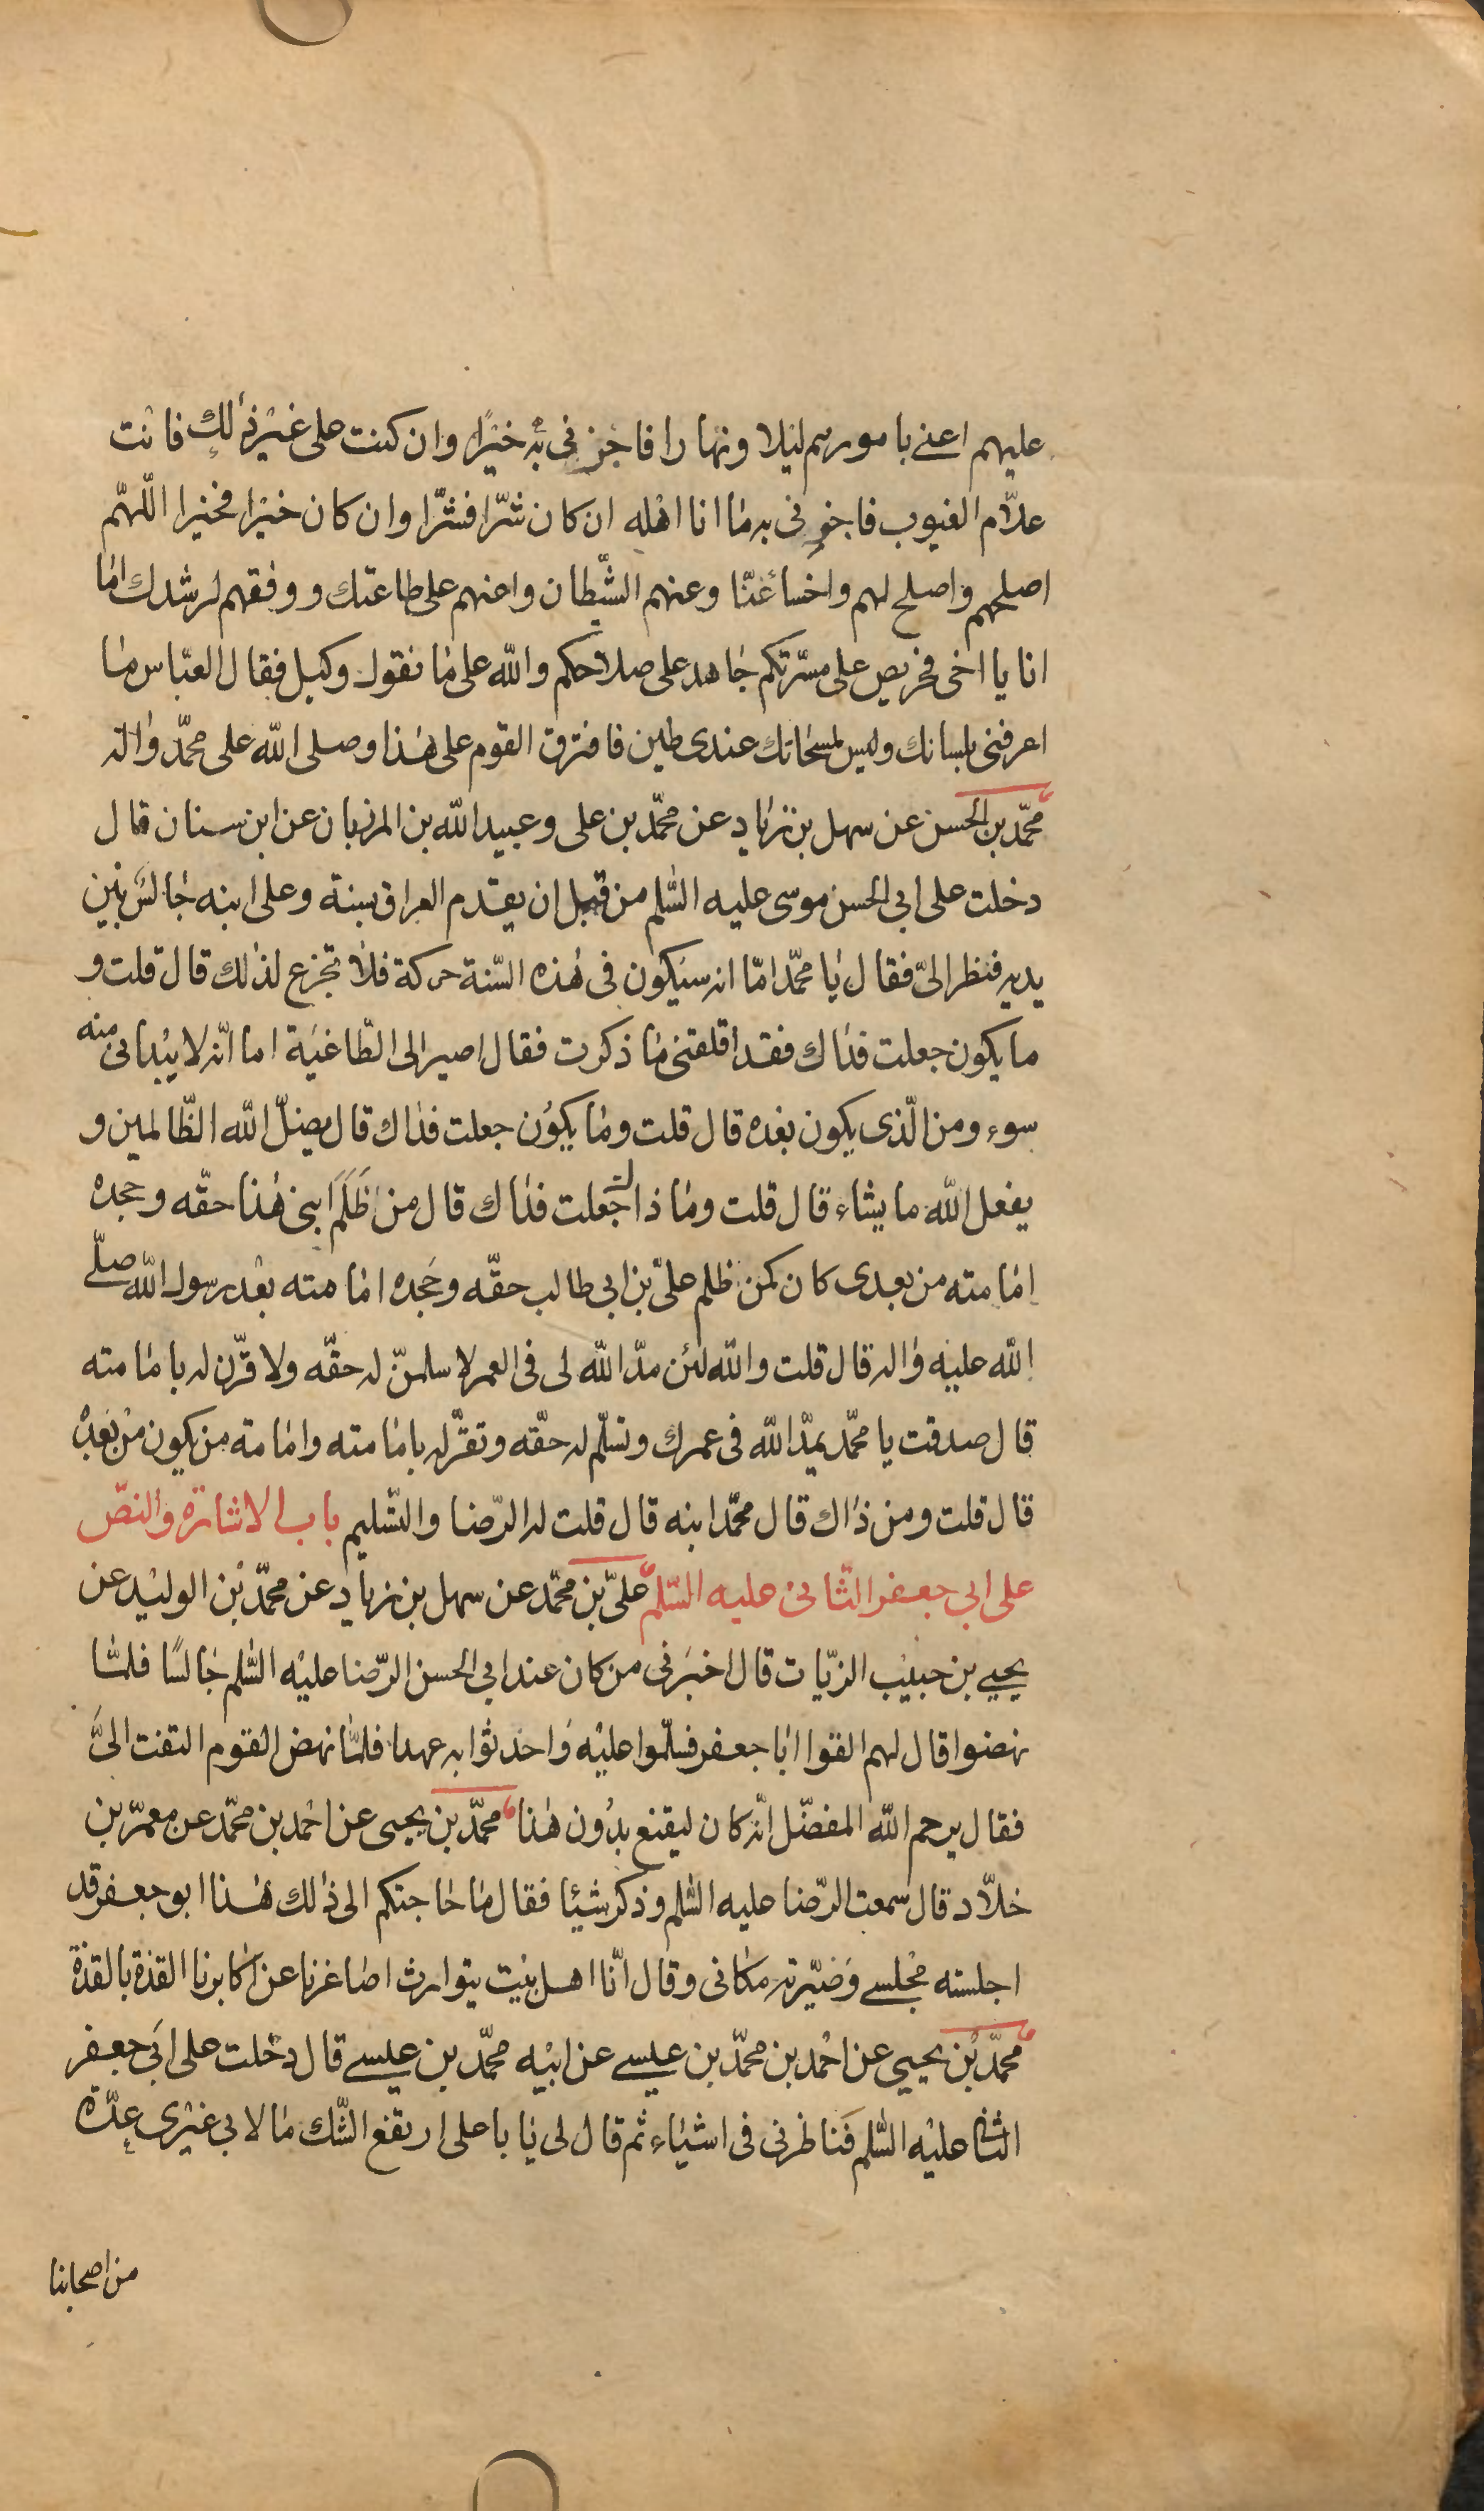 عليهم اعنى بامورهم ليلا ونهارا فاجزنى به خيرًا وان كنت على غير ذلك فانت
علّام الغيوب فاجزنى به ما انا اهله ان كان شرّا فشرّا وان كان خيرا فخيرا اللّهمّ
اصلحهم واصلح لهم واخسأ عنّا وعنهم الشّيطان واعنهم على طاعتك ووفقهم لرشدك امّا
انا يا اخى فحريص على مسرّتكم جاهد على صلاحكم والله على ما نقول وكيل فقال العبّاس ما
اعرفنى بلسانك وليس لمسحاتك عندى طين فافترق القوم على هذا وصلى الله على محمّد واله
محمّد بن الحسن عن سهل بن زياد عن محمّد بن على وعبيد الله بن المرزبان عن ابن سنان قال
دخلت على ابى الحسن موسى عليه السّلم من قبل ان يقدم العراق بسنة وعلى ابنه جالس بين
يديه فنظر الىّ فقال يا محمّد امّا انه سيكون فى هذه السّنة حركة فلا تجزع لذلك قال قلت و
ما يكون جعلت فداك فقد اقلقتنى ما ذكرت فقال اصير الى الطّاغية اما انّه لا يبدانى منه
سوء ومن الّذى يكون بعده قال قلت وما يكون جعلت فداك قال يضلّ الله الظّالمين و
يفعل الله ما يشاء قال قلت وما ذلك جعلت فداك قال من ظَلَمَ ابنى هذا حقّه وجحده
امامته من بعدى كان كمن ظلم علىّ بن ابى طالب حقّه وجحده امامته بعد رسول الله صلّى
الله عليه واله قال قلت والله لئن مدّ الله لى فى العمر لاسلمنّ له حقّه ولاقرّن له بامامته
قال صدقت يا محمّد يمدّ الله فى عمرك وتسلّم له حقّه وتقرّ له بامامته وامامة من يكون من بعده
قال قلت ومن ذاك قال محمّد ابنه قال قلت له الرّضا والتّسليم باب الاشارة والنصّ
على ابى جعفر الثّانى عليه السّلم علىّ بن محمّد عن سهل بن زياد عن محمّد بن الوليد عن
يحيى بن حبيب الزيّات قال اخبرنى من كان عند ابى الحسن الرّضا عليه السّلم جالسًا فلمّا
نهضوا قال لهم القوا ابا جعفر فسلّموا عليه واحدثوا به عهدا فلمّا نهض القوم التفت الىّ
فقال يرحم الله المفضّل انّه كان ليقنع بدون هذا محمّد بن يحيى عن احمد بن محمّد عن معمّر بن
خلّاد قال سمعت الرّضا عليه السّلم وذكر شيئا فقال ما حاجتكم الى ذلك هذا ابو جعفر قد
اجلسته مجلسى وصيّرته مكانى وقال انّا اهل بيت يتوارث اصاغرنا عن اكابرنا القذة بالقذة
محمّد بن يحيى عن احمد بن محمّد بن عيسى عن ابيه محمّد بن عيسى قال دخلت على ابى جعفر
الثانى عليه السّلم فناظرنى فى اشياء ثم قال لى يا با على ارتفع الشّك ما لابى غيرى عدّة
من اصحابنا